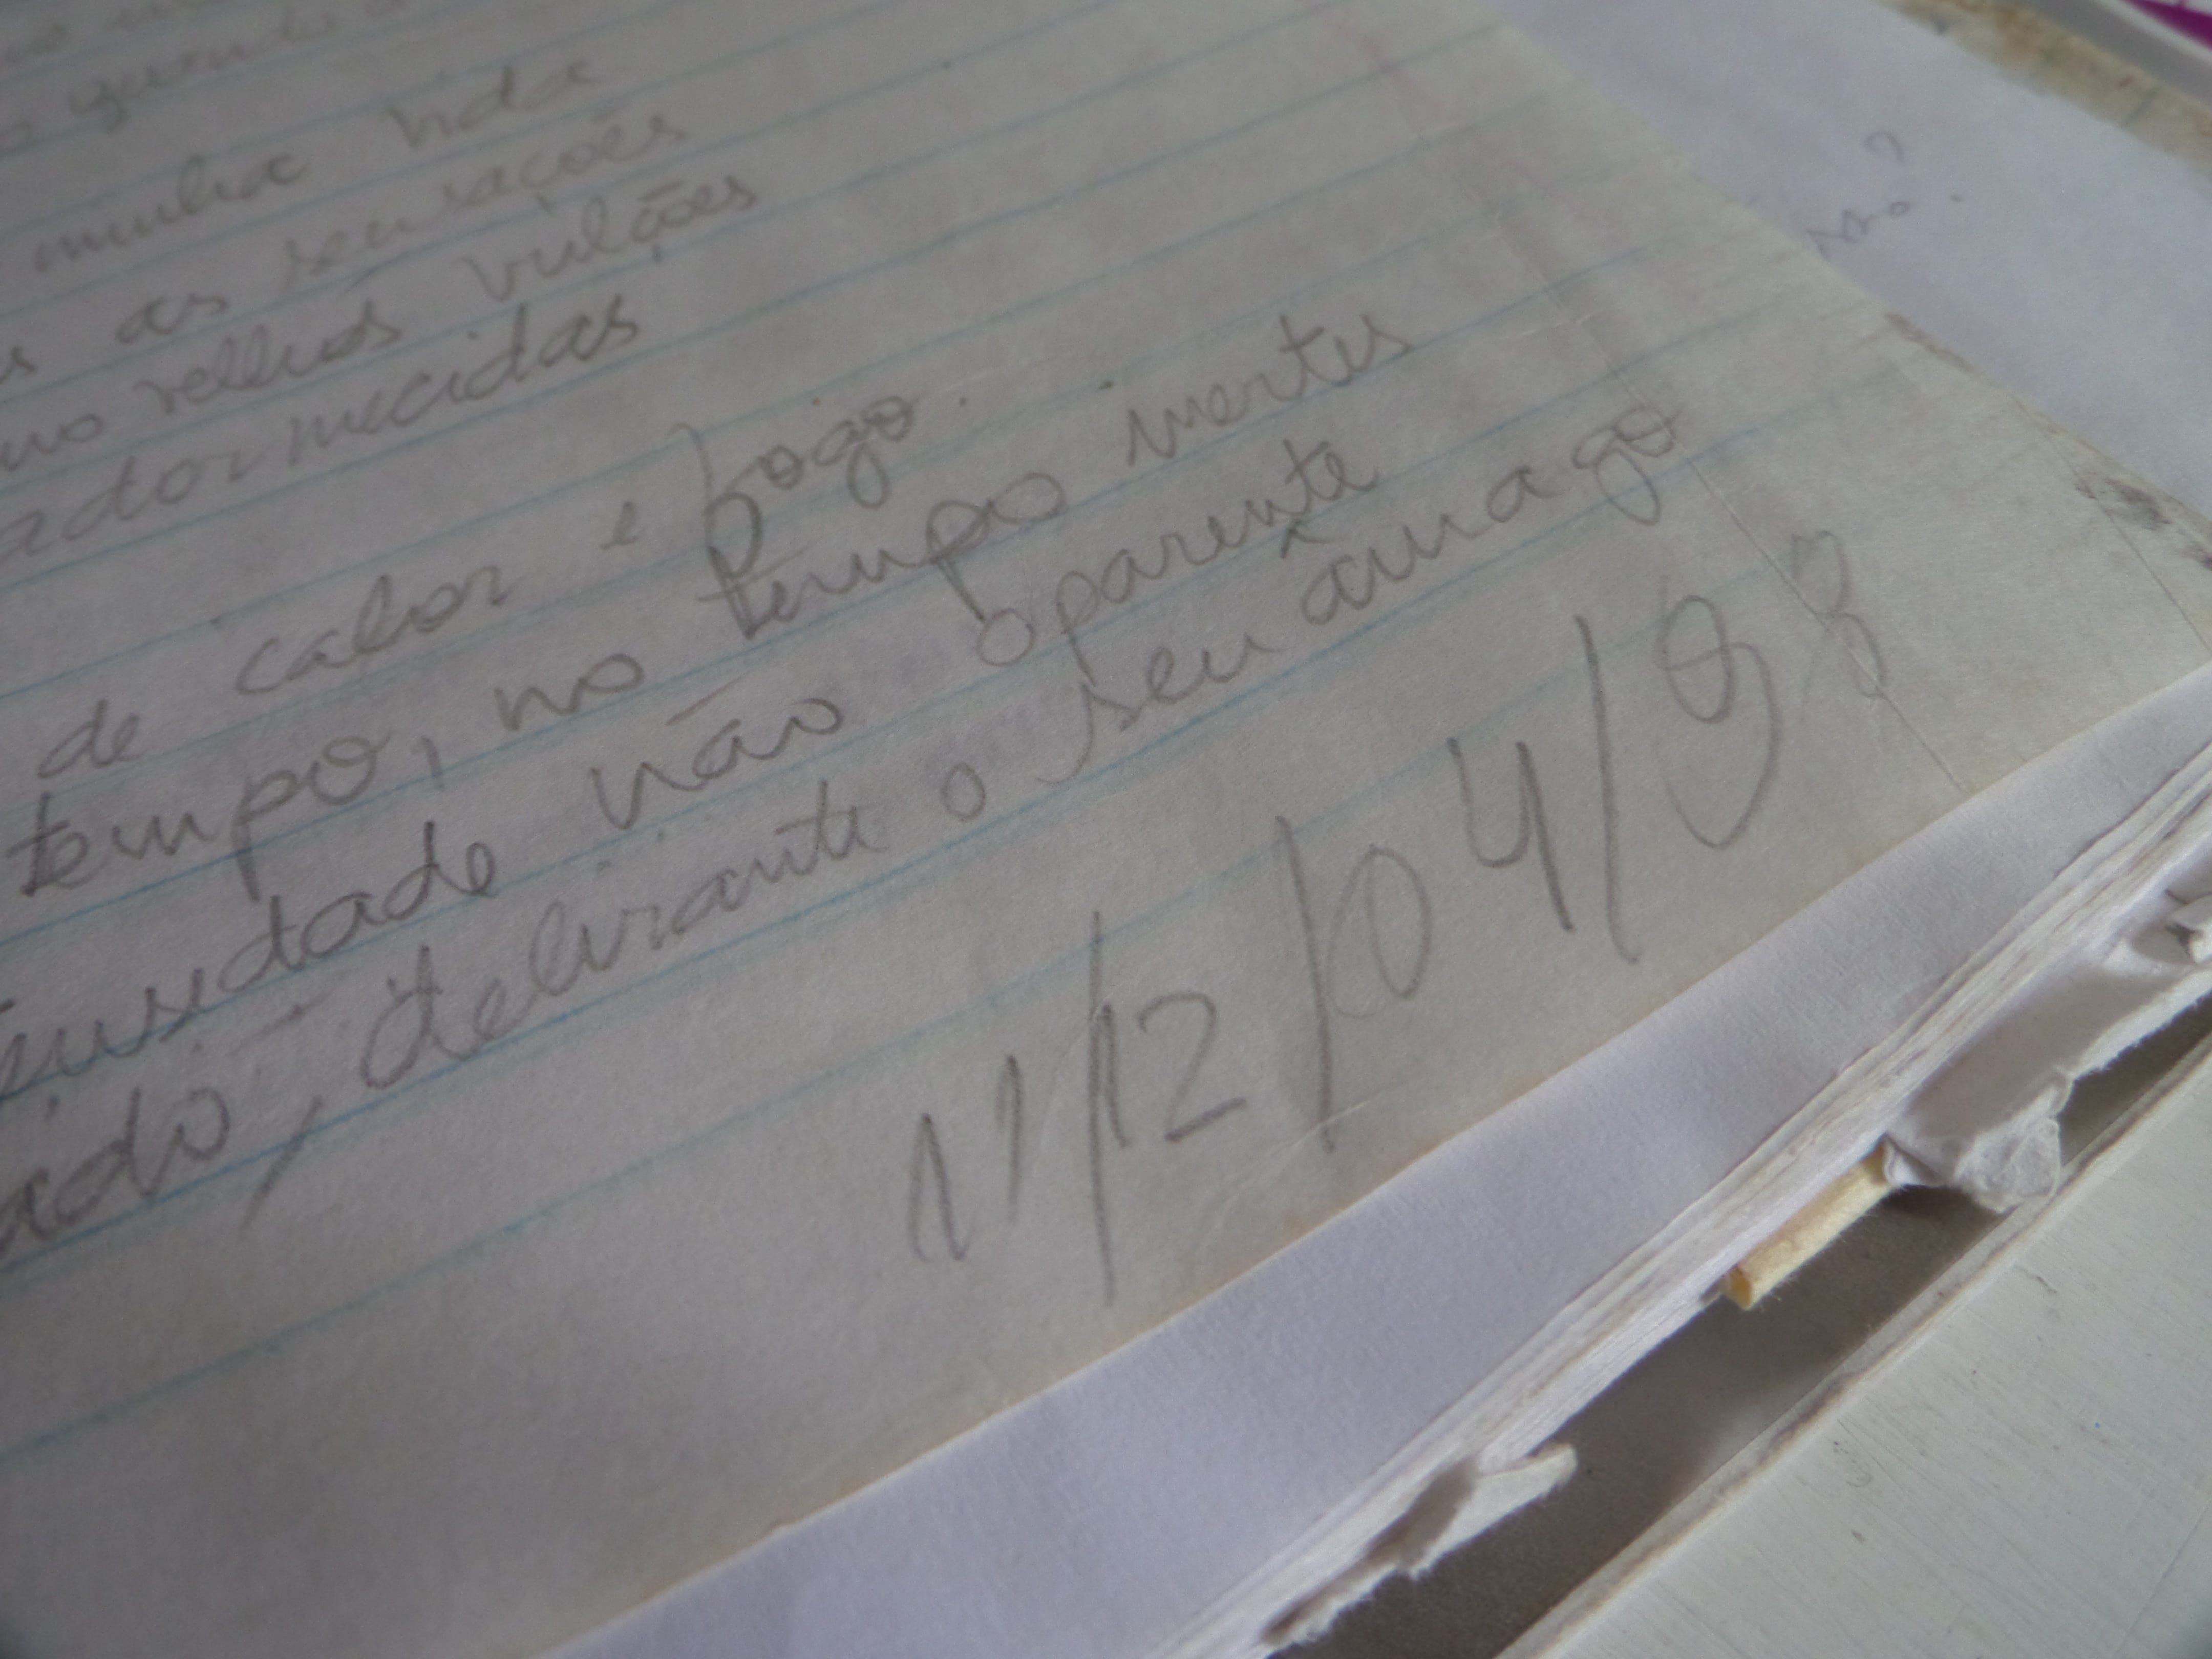 minha vida
as sensações
velhos vulções
adormecidas
de calor e fogo.
tempo, no tempo inertes
não aparente
delirante o seu âmago
11/12/04/93